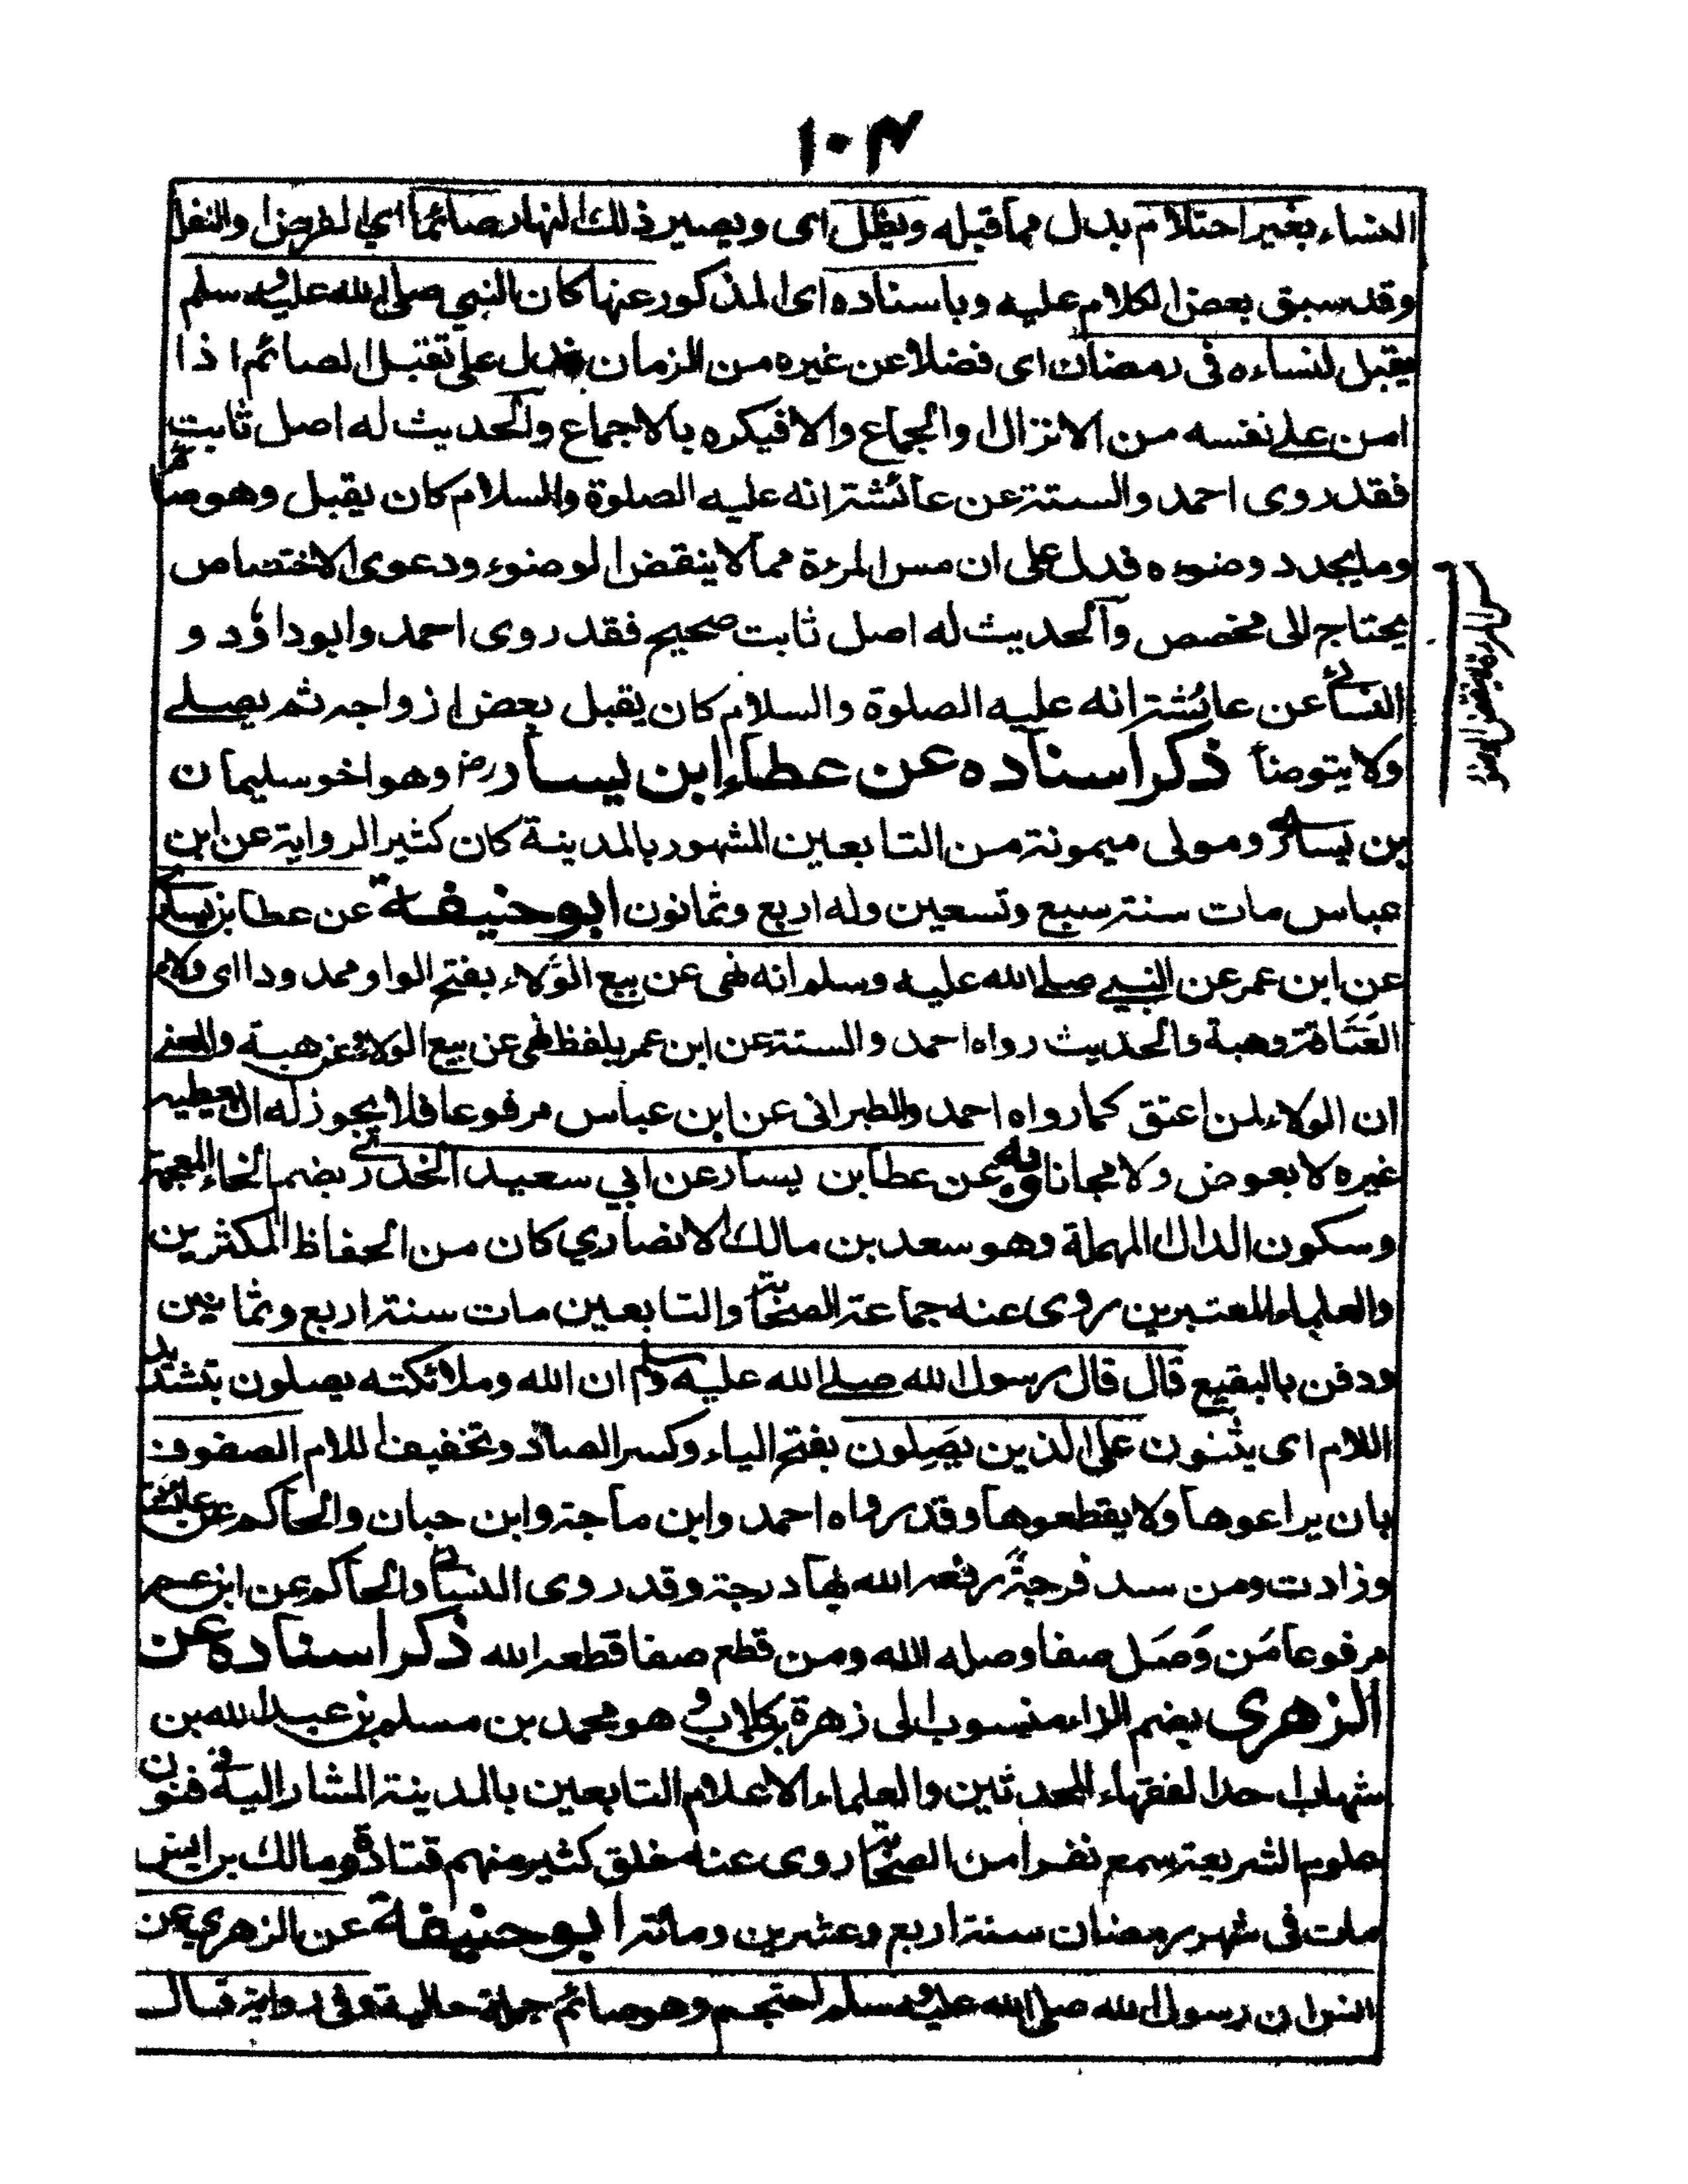 ١٠٣
النساء بغير احتلام بدل مما قبله ويظل اى ويصير ذلك النهار صائما اي الفرض او النفل
وقد سبق بعض الكلام عليه وباسناده اى المذكور عنها كان النبي صلى الله عليه وسلم
يقبل لنساءه فى رمضان اى فضلا عن غيره من الزمان فدل على تقبيل الصائم اذا
امن على نفسه من الانزال والجماع والا فيكره بالاجماع والحديث له اصل ثابت
فقد روى احمد والستة عن عائشة انه عليه الصلوة والسلام كان يقبل وهو صائم
وما يجدد وضوءه فدل على ان مس المرءة مما لا ينقض الوضوء ودعوى الاختصاص
يحتاج الى مخصص والحديث له اصل ثابت صحيح فقد روى احمد وابوداؤد و
النسائى عن عائشة انه عليه الصلوة والسلام كان يقبل بعض ازواجه ثم يصلے
ولا يتوضأ ذكر اسناده عن عطاء ابن يسار رض وهو اخو سليمان
بن يسار ومولى ميمونة من التابعين المشهور بالمدينة كان كثير الرواية عن ابن
عباس مات سنة سبع وتسعين وله اربع وثمانون ابو حنيفة عن عطا بن يسار
عن ابن عمر عن النبے صلے الله عليه وسلم انه نهى عن بيع الوَلاء بفتح الواو ممدودا اى ولاء
العَتَاقة وهبة والحديث رواه احمد والستة عن ابن عمر بلفظ نهى عن بيع الولاء وعن هبة والمعنے
ان الولاء لمن اعتق كما رواه احمد والطبرانى عن ابن عباس مرفوعا فلا يجوز له ان يعطيه
غيره لا بعوض ولا مجانا وبه عن عطا بن يسار عن ابي سعيد الخدرى بضم الخاء المعجمة
وسكون الدال المهملة وهو سعد بن مالك الانصاري كان من الحفاظ المكثرين
والعلماء المعتبرين روى عنه جماعة الصحابة والتابعين مات سنة اربع وثمانين
ودفن بالبقيع قال قال رسول الله صلے الله عليه وسلم ان الله وملائكته يصلون بتشديد
اللام اى يثنون على الذين يَصِلون بفتح الياء وكسر الصاد وتخفيف اللام الصفوف
بان يراعوها ولا يقطعوها وقد رواه احمد وابن ماجة وابن حبان والحاكم عن عائشة
وزادت ومن سد فرجة رفعه الله بها درجة وقد روى النسائى والحاكم عن ابن عمر
مرفوعا مَن وَصَل صفا وصله الله ومن قطع صفا قطعه الله ذكر اسناده عن
الزهرى بضم الزاء منسوب الى زهرة بن كلاب وهو محمد بن مسلم بن عبد الله بن
شهاب احد الفقهاء المحدثين والعلماء الاعلام التابعين بالمدينة المشار اليه فى فنون
علوم الشريعة سمع نفرا من الصحابة روى عنه خلق كثير منهم قتادة ومالك بن انس
مات فى شهر رمضان سنة اربع وعشرين ومائة ابو حنيفة عن الزهرى عن
انس ان رسول الله صلى الله عليه وسلم احتجم وهو صائم جملة حالية وفى رواية قال